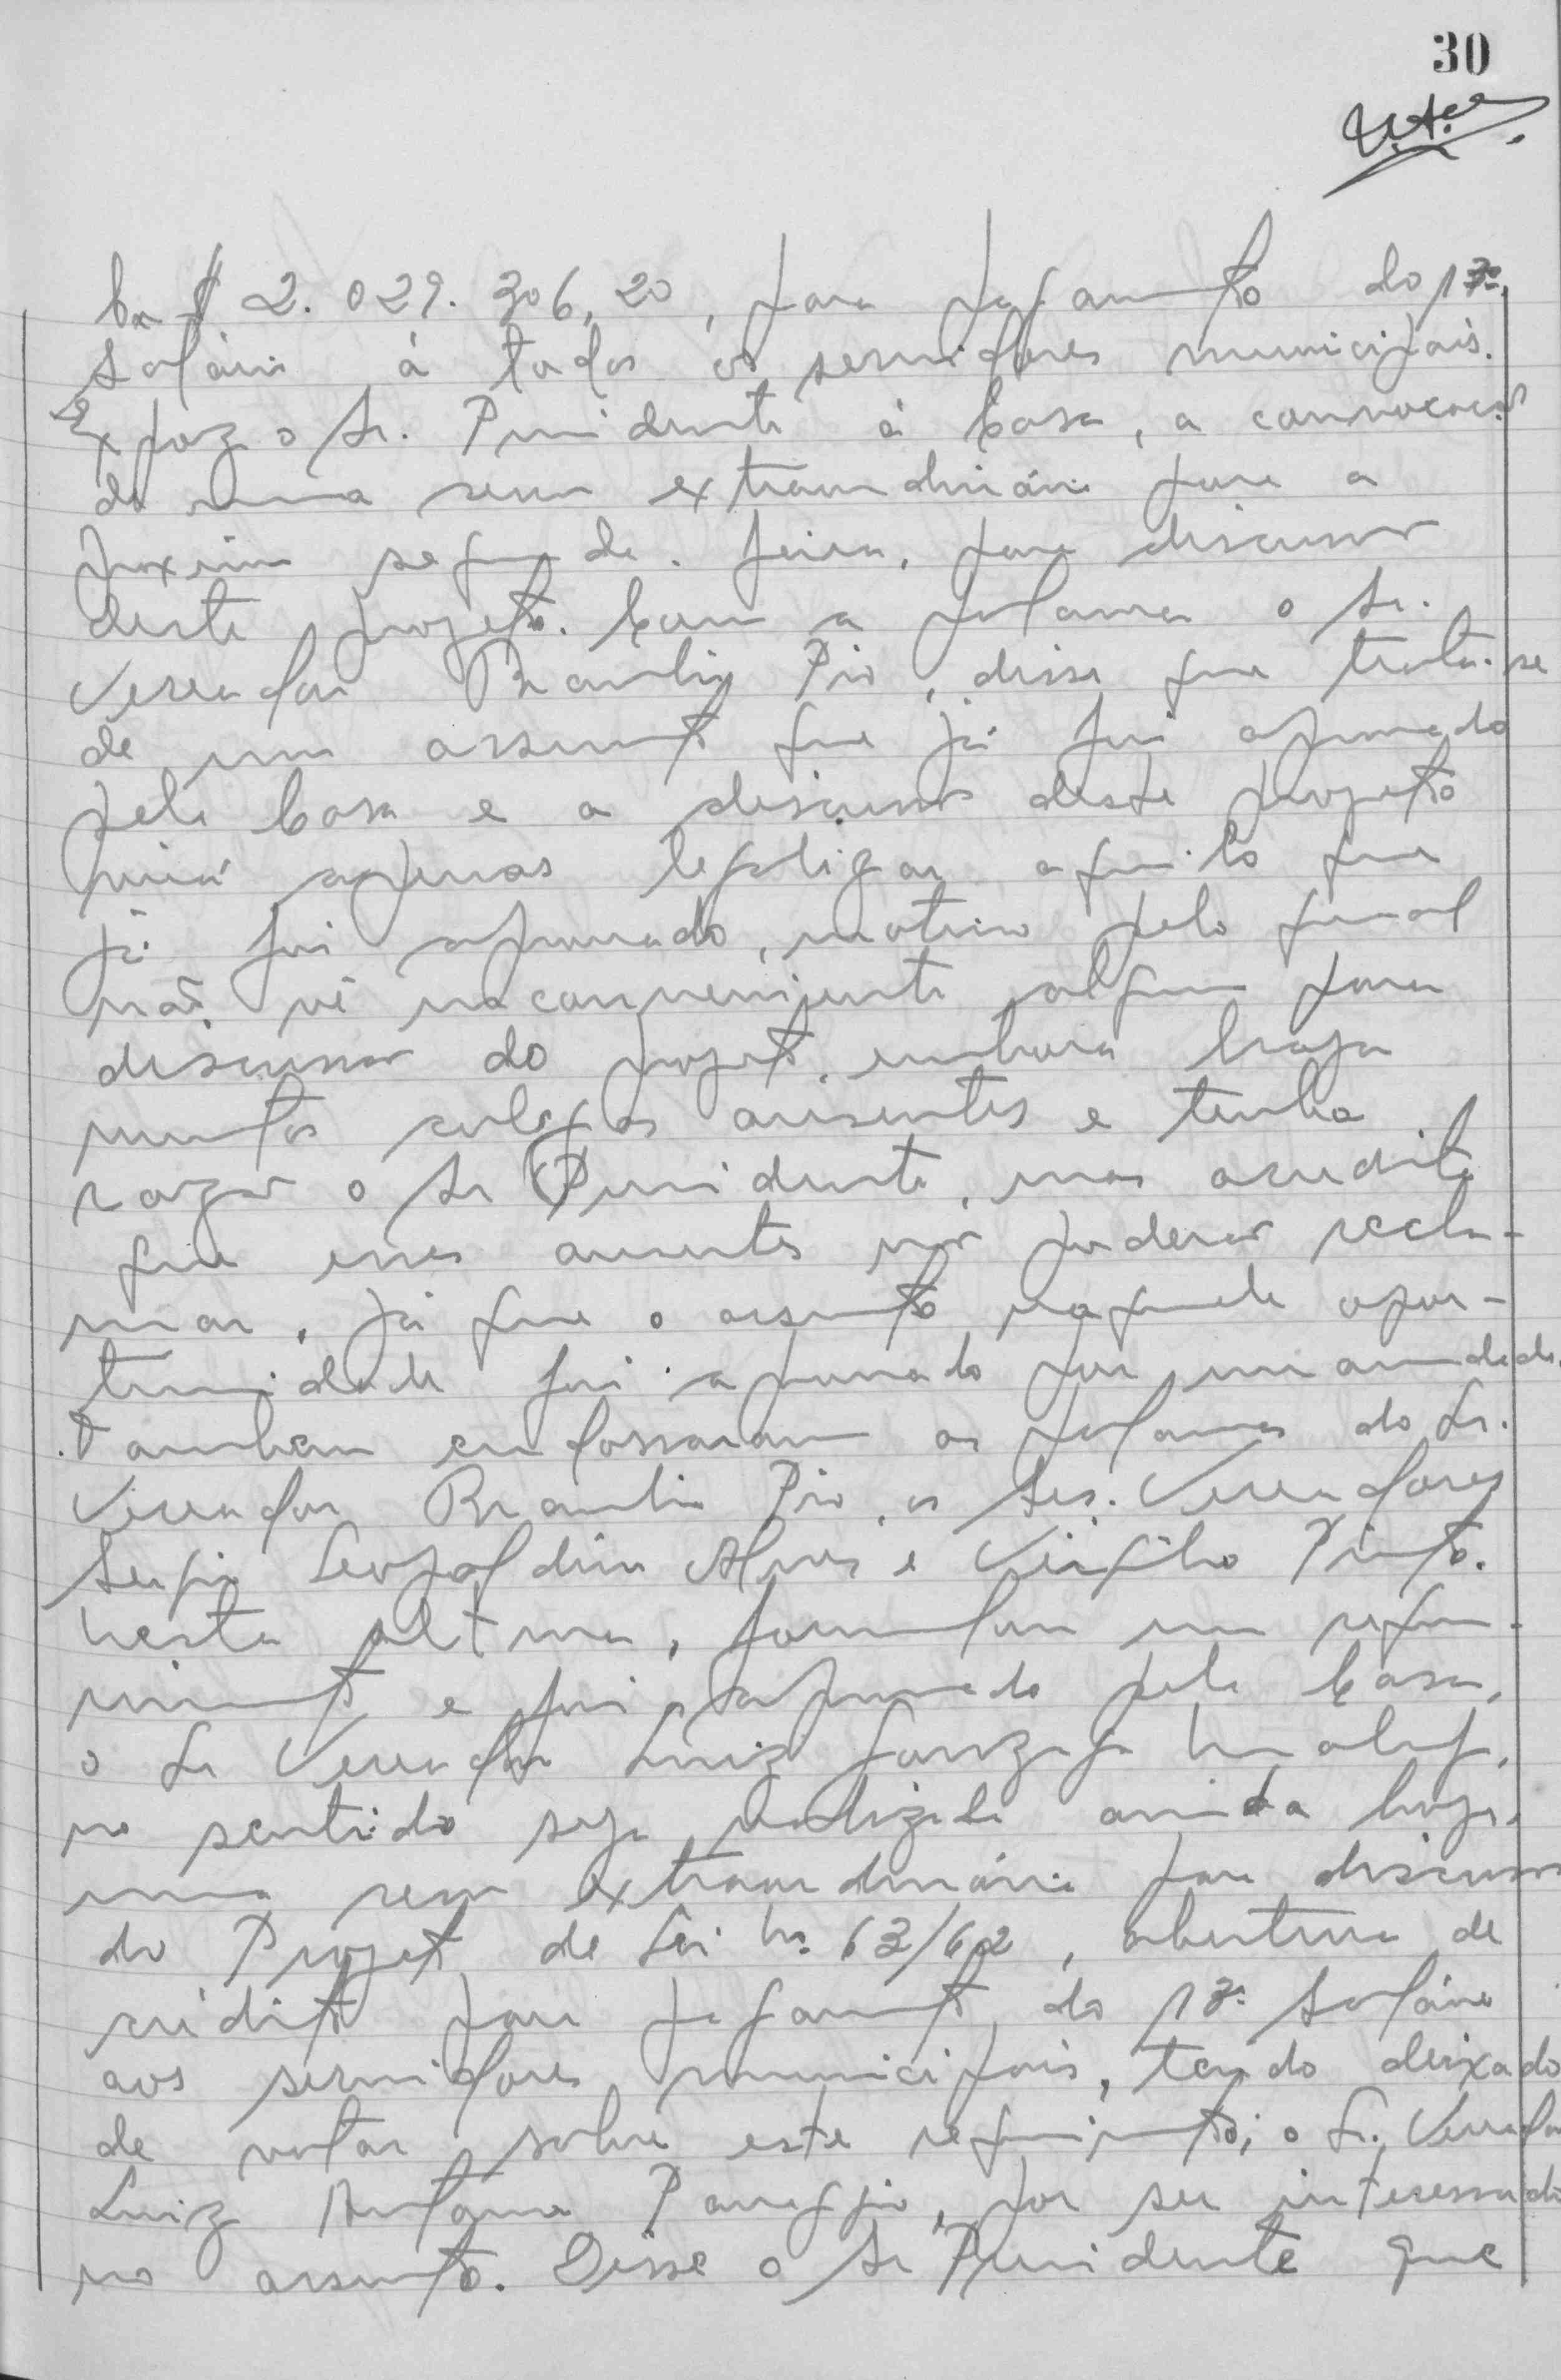 30
Cr$ 2.029.306,20, para pagamento do 13º
salário à todos os servidores municipais.
Expoz o Sr. Presidente à Casa, a convocação
de uma sessão extraordinária para a
proxima segunda-feira, para discussão
deste projeto. Com a palavra o Sr.
Vereador Braulio Pio, disse que trata-se
de um assunto que já foi aprovado
pela Casa e a discussão deste projeto
virá apenas legalizar aquilo que
já foi aprovado, motivo pelo qual
não vê inconveniente algum para
discussão do projeto, embora haja
muitos colegas ausentes e tenha
razão o Sr Presidente, mas acredita
que esses ausentes não poderão recla-
mar, já que o assunto naquela opor-
tunidade foi aprovado por unanimidade.
Tambem endossaram as palavras do Sr.
Vereador Braulio Pio, os Srs. Vereadores
Sergio Leopoldino Alves e Virgilio Pinto.
Nesta altura, formulou um reque-
rimento e foi aprovado pela Casa,
o Sr Vereador Luiz Gonzaga Maluf,
no sentido seja realizada ainda hoje,
uma sessão extraordinária para discussão
do Projeto de Lei nº 63/62, abertura de
crédito para pagamento do 13º salário
aos servidores municipais, tendo deixado
de votar sobre este requerimento, o Sr. Vereador
Luiz Antonio, por ser interessado
no assunto. Disse o Sr Presidente que